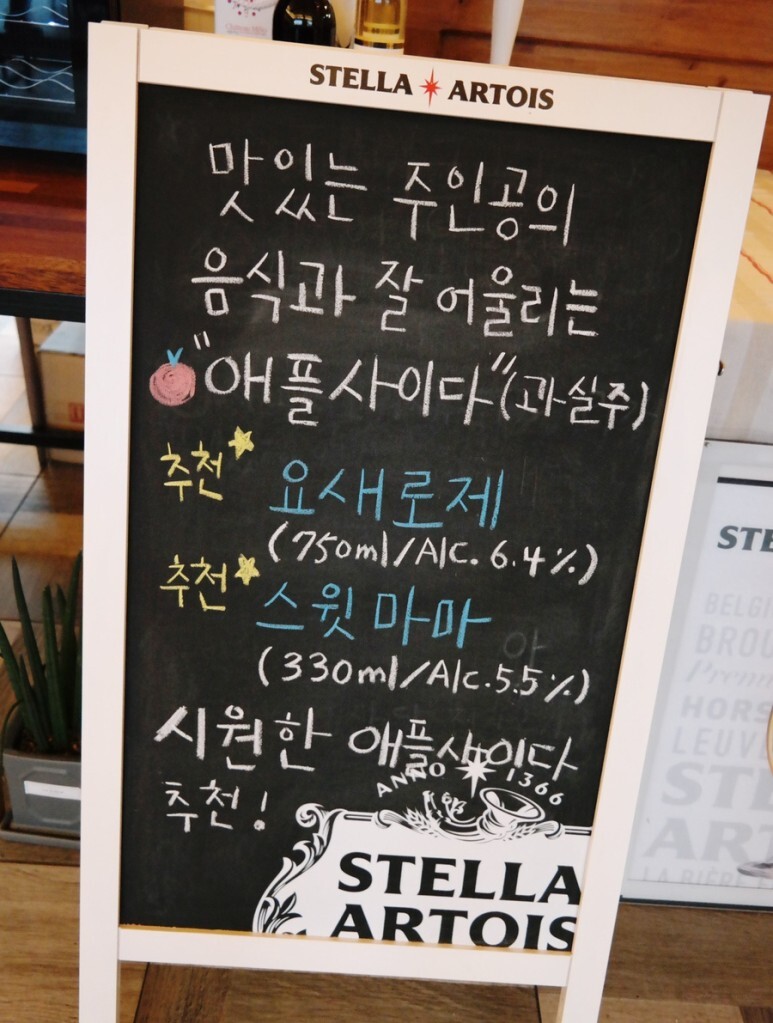 STELLA ARTOIS
맛있는 주인공의
음식과 잘 어울리는
"애플사이다"(과실주)
추천 요새로제
(750ml/Alc. 6.4%)
추천 스윗마마
(330ml/Alc.5.5%)
시원한 애플사이다
추천!
ANNO 1366
STELLA
ARTOIS
STE
BELGI
BROU
Premi
HORS
LEUV
STE
ART
LA BIÈRE